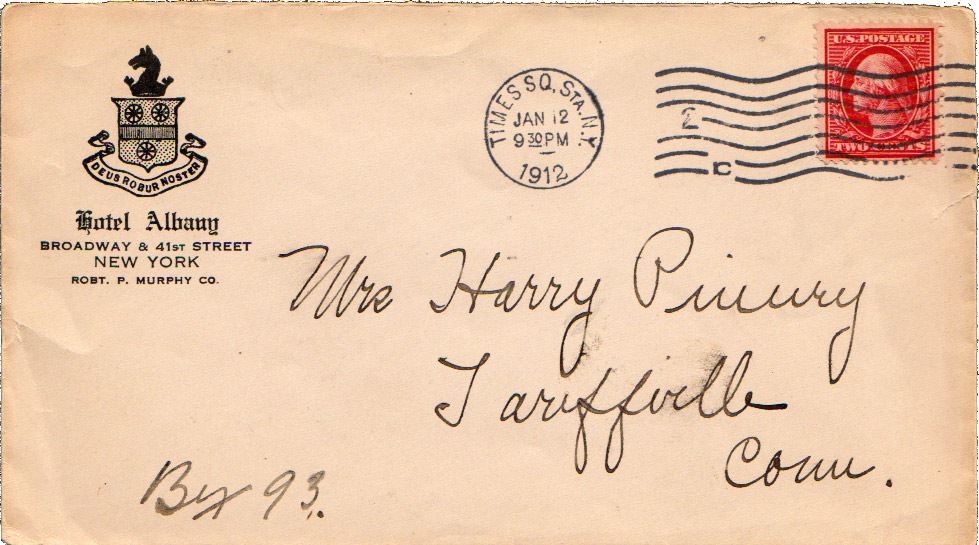 DEUS ROBUR NOSTER
Hotel Albany
BROADWAY & 41ST STREET
NEW YORK
ROBT. P. MURPHY CO.
TIMES SQ. STA. N.Y.
JAN 12
930PM
1912
2
C
U.S. POSTAGE
TWO CENTS
Mrs Harry
Tariffville
Conn.
Box 93.